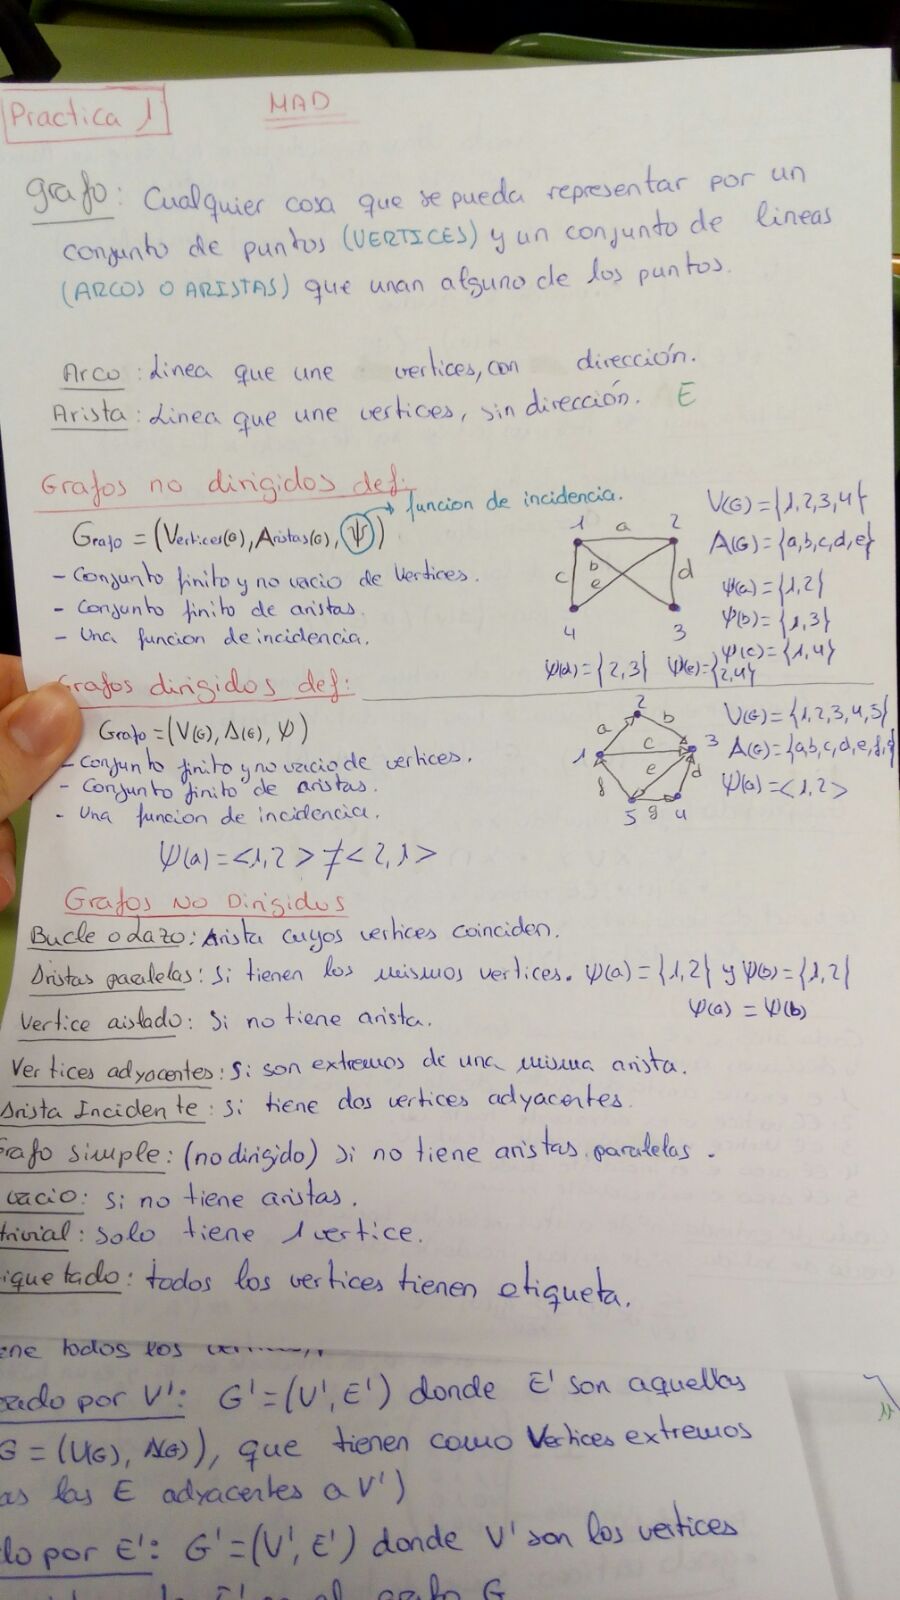 Practica 1
MAD
Grafo: Cualquier cosa que se pueda representar por un
conjunto de puntos (VERTICES) y un conjunto de lineas
(ARCOS O ARISTAS) que unan alguno de los puntos.
Arco: Linea que une vertices, con dirección.
Arista: Linea que une vertices, sin dirección. E
Grafos no dirigidos def:
Grafo = (Vertices(G), Aristas(G), Ψ) → funcion de incidencia.
- Conjunto finito y no vacio de Vertices.
- Conjunto finito de aristas.
- Una funcion de incidencia.
1 a 2
c b e d
4 3
V(G) = {1,2,3,4}
A(G) = {a,b,c,d,e}
Ψ(a) = {1,2}
Ψ(b) = {1,3}
Ψ(c) = {1,4}
Ψ(d) = {2,3} Ψ(e) = {2,4}
Grafos dirigidos def:
Grafo = (V(G), A(G), Ψ)
- Conjunto finito y no vacio de vertices.
- Conjunto finito de aristas.
- Una funcion de incidencia.
Ψ(a) = <1,2> ≠ <2,1>
2
a b
1 c 3
f e d
5 g 4
V(G) = {1,2,3,4,5}
A(G) = {a,b,c,d,e,f,g
Ψ(a) = <1,2>
Grafos No Dirigidos
Bucle o Lazo: Arista cuyos vertices coinciden.
Aristas paralelas: Si tienen los mismos vertices. Ψ(a) = {1,2} y Ψ(b) = {1,2}
Ψ(a) = Ψ(b)
Vertice aislado: Si no tiene arista.
Vertices adyacentes: Si son extremos de una misma arista.
Arista Incidente: si tiene dos vertices adyacentes.
rafo simple: (no dirigido) si no tiene aristas paralelas.
vacio: si no tiene aristas.
trivial: solo tiene 1 vertice.
iquetado: todos los vertices tienen etiqueta.
ene todos los
rado por V': G' = (V', E') donde E' son aquellas
G = (V(G), A(G)), que tienen como Vertices extremos
as las E adyacentes a V')
do por E': G' = (V', E') donde V' son los vertices
E' en el grafo G